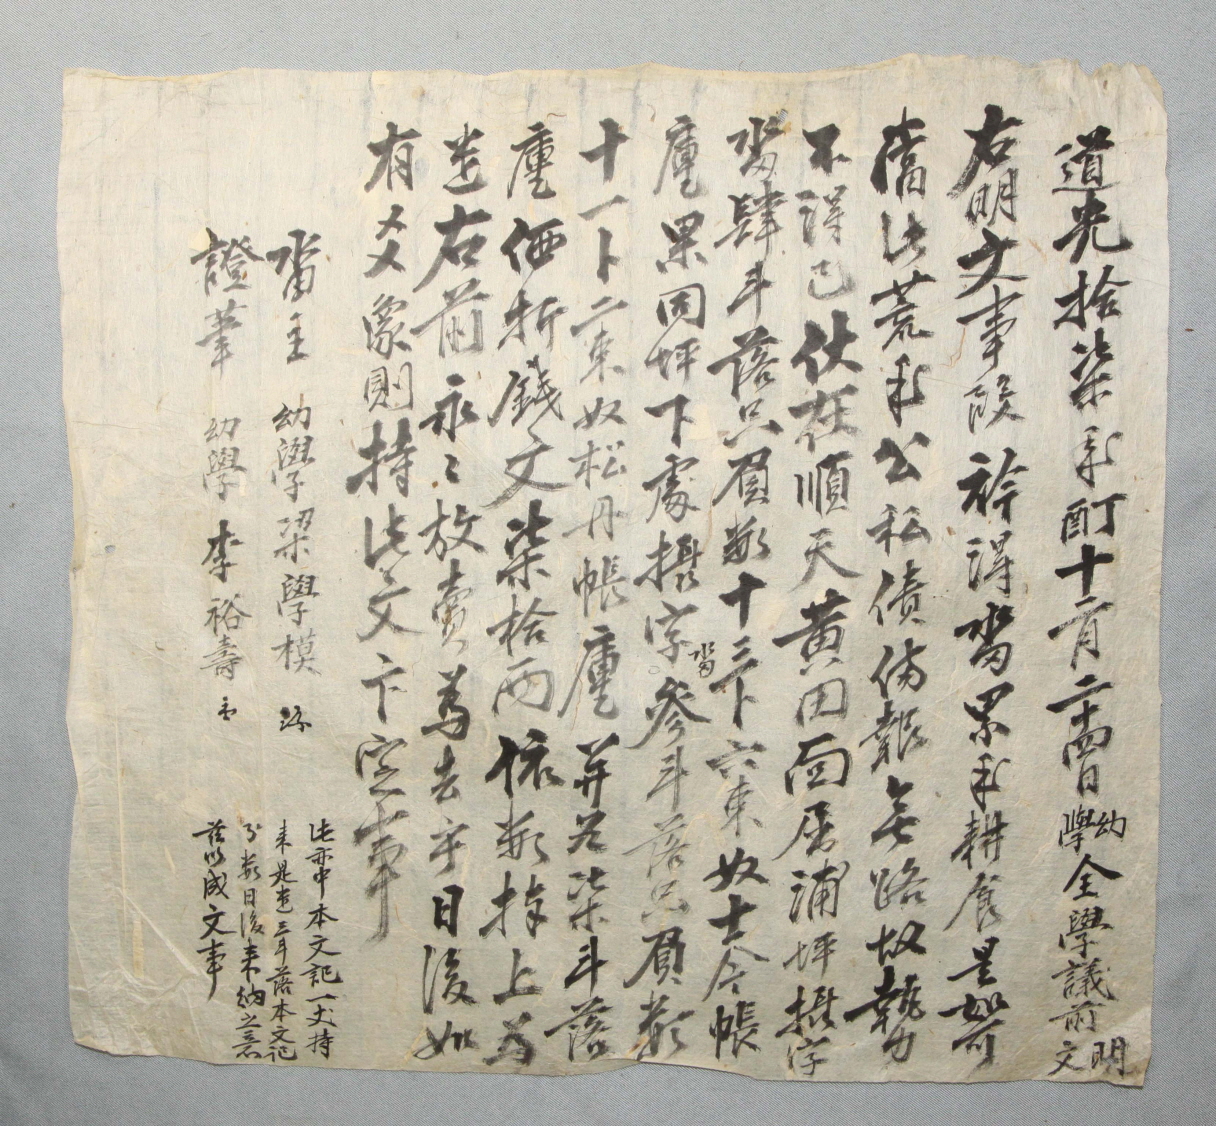 道光拾柒年丁酉十二月二十四日 幼學全學議前明文
右明文事段衿得畓累年耕食是如可
當此荒年公私債俻報無路故勢
不得已伏在順天黃田面唇浦坪攝字
畓肆斗落只負數十三卜六束奴士今帳
庫果同坪下處攝字畓參斗落只負數
十一卜二束奴松丹帳庫幷爲柒斗落
庫価折錢文柒拾兩依數捧上爲
遣右前永永放賣爲去乎日後如
有爻象則持此文卞定事
畓主 幼學 梁學模
證筆 幼學 李裕壽
此亦中本文記一丈持
來是遣三斗落本文記
日後來納之意
茲以成文事